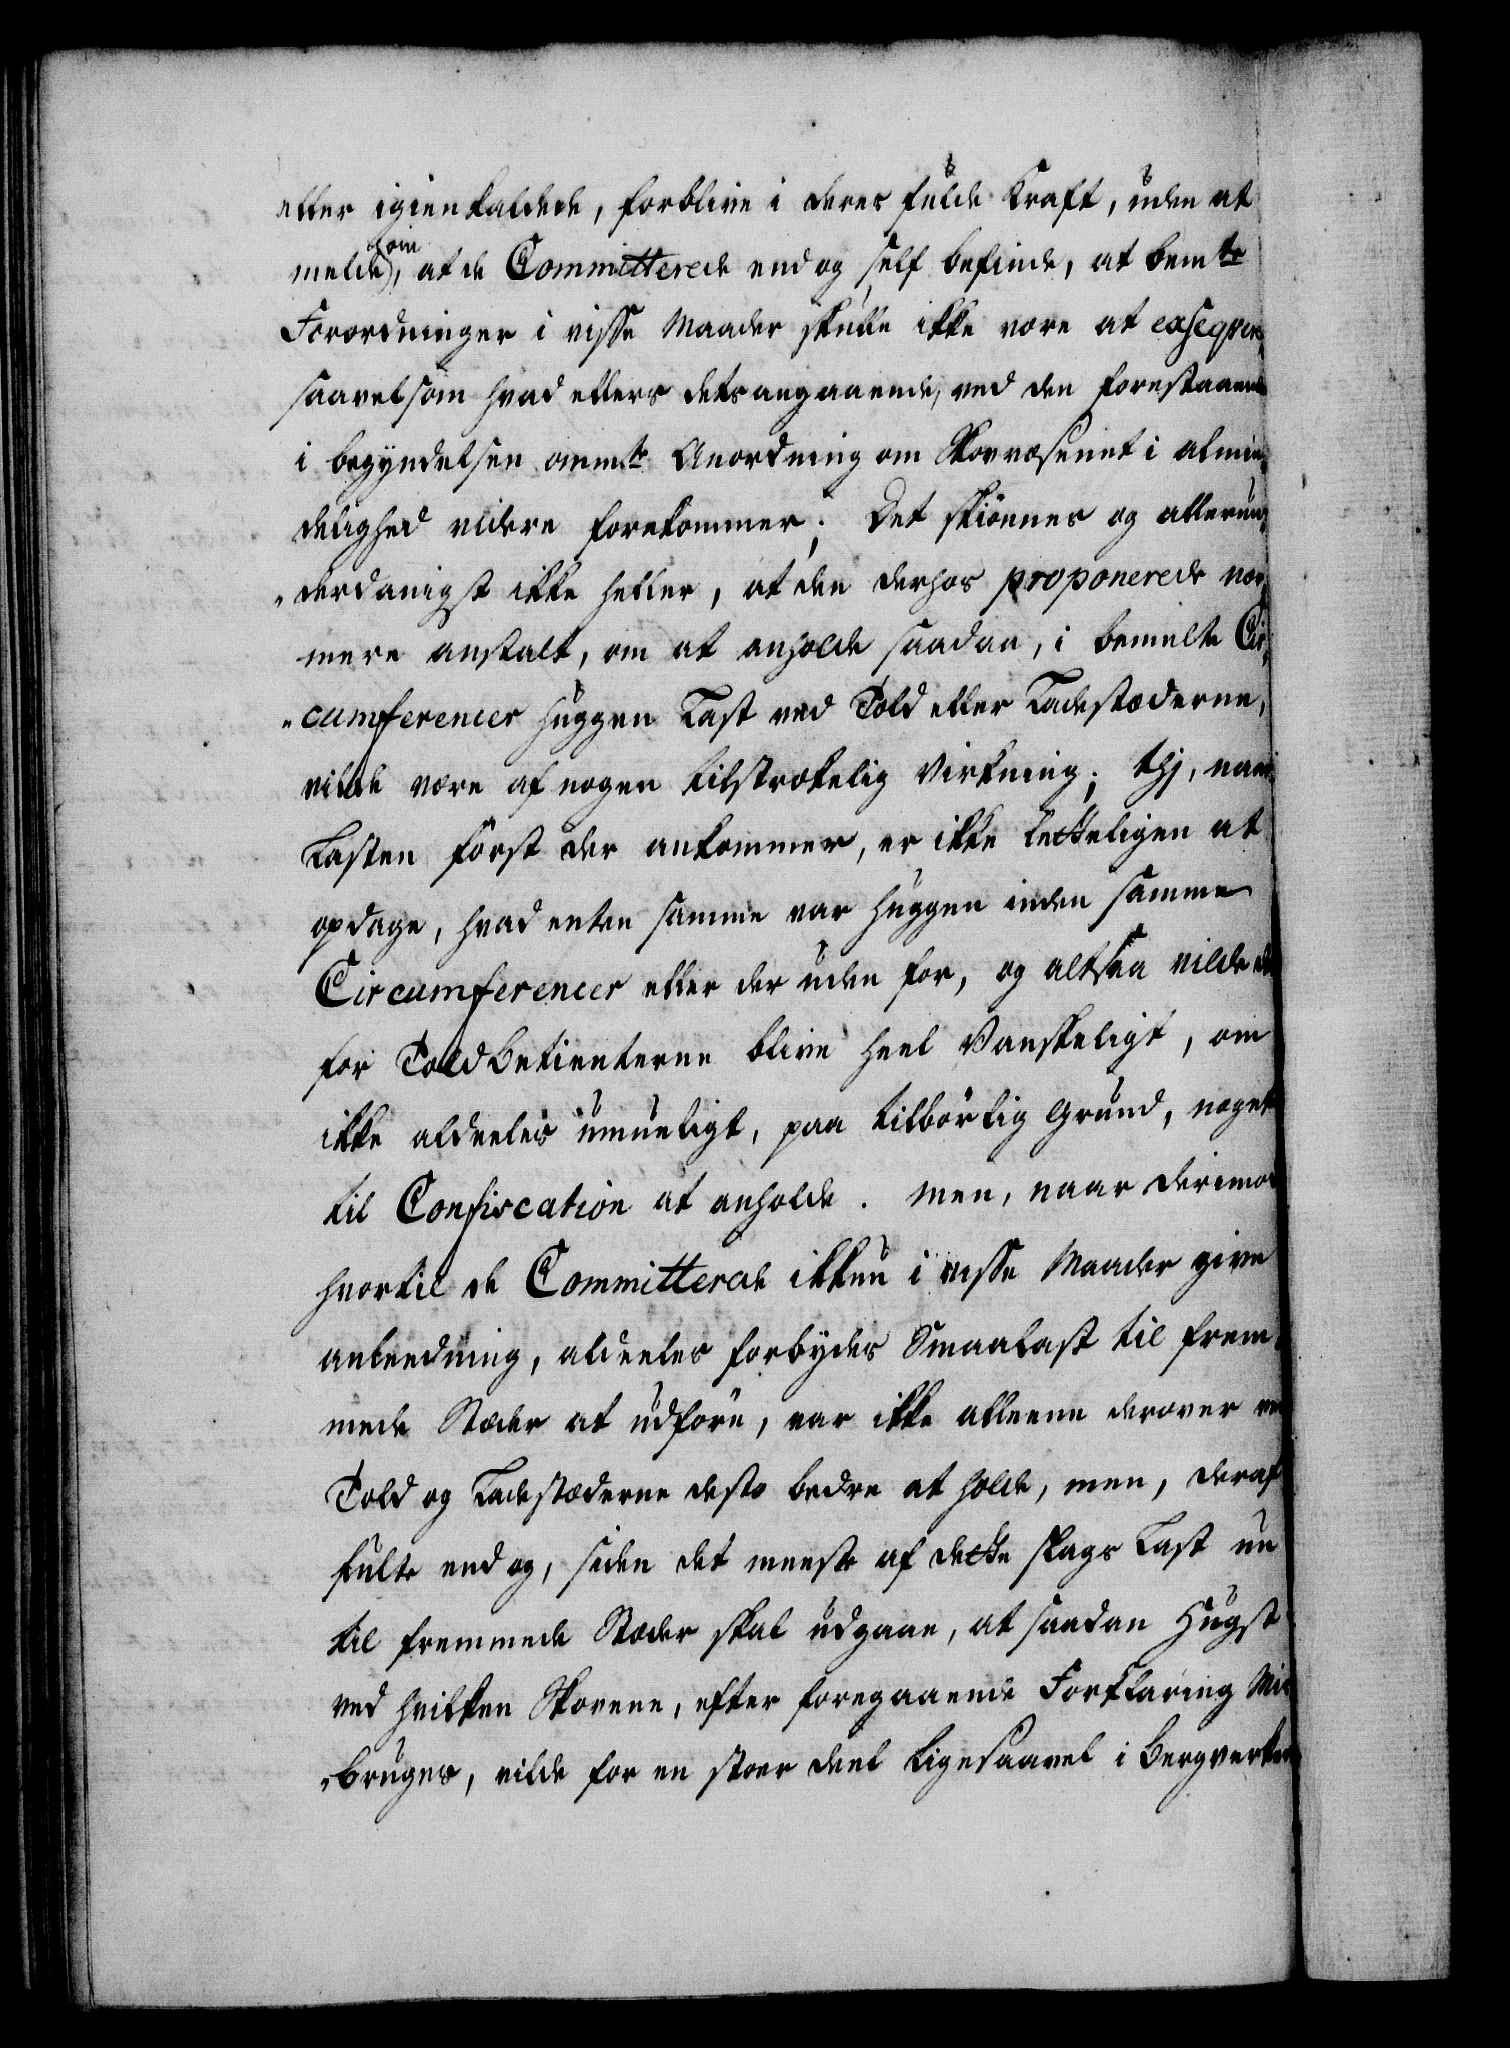 eller igienkaldede, forblive i deres fulde Kraft, uden at
melde, om at de Committerede end og self befinde, at bemte
Forordninger i visse Maader skulle ikke være at exseqvere,
saavelsom hvad ellers detsangaaende, ved den forestaaende
i begyndelsen ommte Anordning om Skovvæsenet i almin-
delighed videre forekommer; Det skiönnes og allerun-
"derdanigst ikke heller, at den derhos proponerede nær-
mere anstalt, om at anholde saadan, i bemelte Cir-
"cumferencer huggen Last ved Told eller Ladestæderne,
vilde være af nogen tilstrækelig Virkning; thj, naar
Lasten först der ankommer, er ikke letteligen at
opdage, hvad enten samme var huggen inden samme
Circumferencer eller der uden for, og altsaa vilde det
for Toldbetienterne blive heel Vanskeligt, om
ikke aldeeles umueligt, paa tilbörlig Grund, noget
til Confiscation at anholde. Men, naar derimod
hvortil de Committerede ikkun i visse Maader give
anleedning, aldeeles forbydes Smaalast til frem-
mede Stæder at udföre, var ikke alleene derover ved
Told og Ladestæderne desto bedre at holde, men, deraf
fulte end og, siden det meeste af dette slags Last nu
til fremmede Stæder skal udgaae, at saadan Hugst
ved hvilken Skovene, efter foregaaende Forklaring Mis-
"bruges, vilde for en stoer deel ligesaavel i Bergverkets